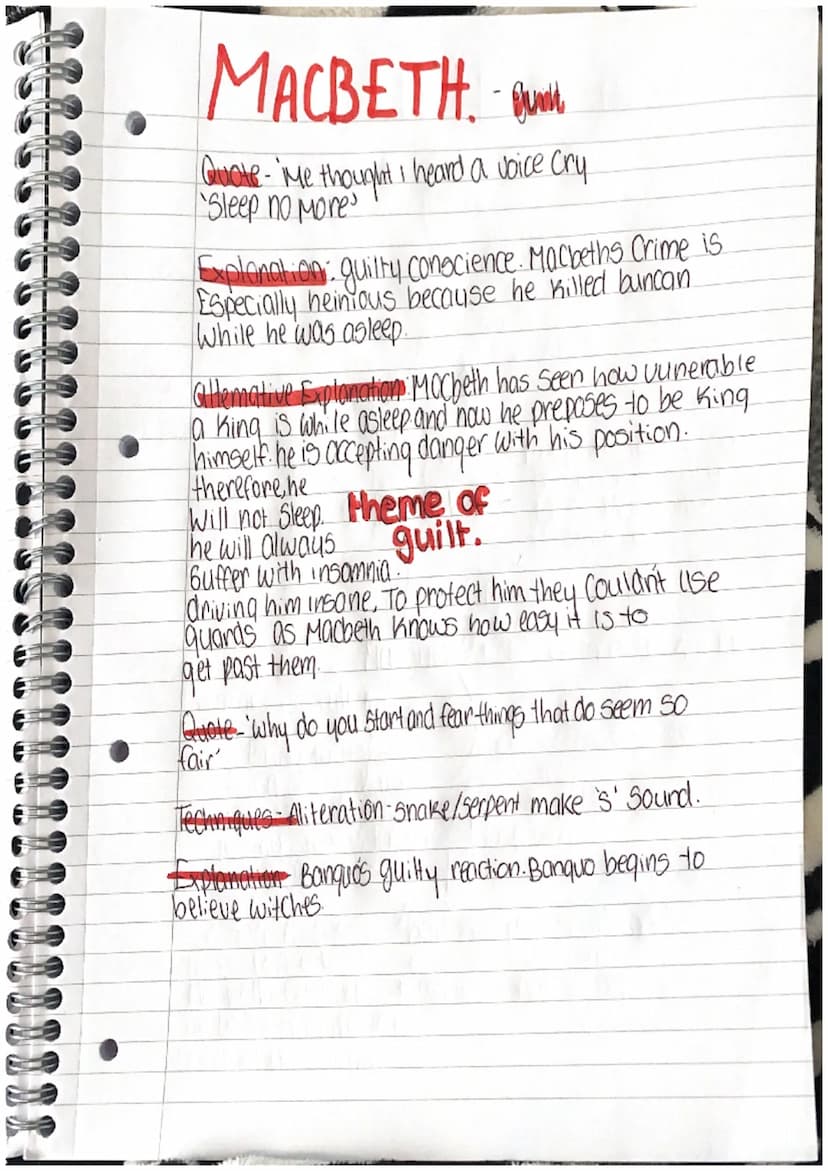 MACBETH. - guilt
Quote - 'Me thought i heard a voice Cry
'Sleep no More'
Explanation: guilty conscience. Macbeths Crime is
Especially heinious because he killed Duncan
While he was asleep.
alternative Explanation: Macbeth has seen how vunerable
a King is while asleep and now he preposes to be King
himself. he is accepting danger with his position.
therefore, he
Will not Sleep.
he will always
Suffer with insomnia.
theme of
guilt.
driving him insane. To protect him they couldn't use
guards as Macbeth knows how easy it is to
get past them.
Quote - 'why do you start and fear things that do seem so
fair'
Techniques - Aliteration - snake/serpent make 's' sound.
Explanation Banquo's guilty reaction. Banquo begins to
believe witches.